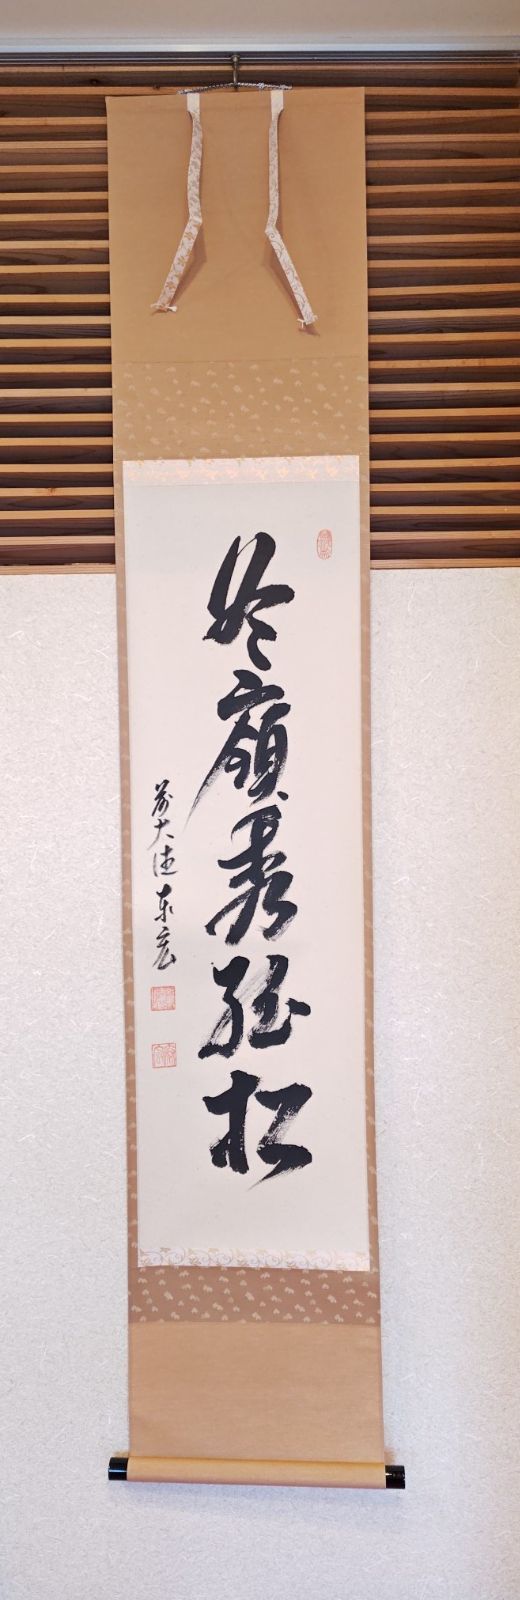 冬嶺秀孤松
前大徳東宏